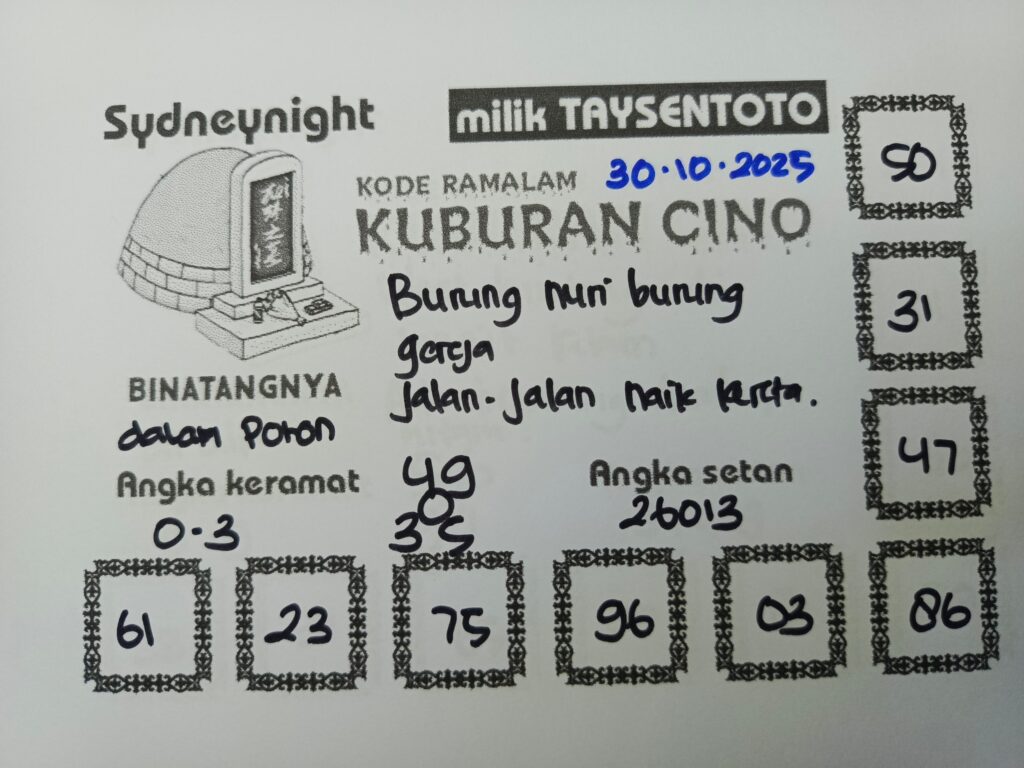 Sydneynight
milik TAYSENTOTO
30.10.2025
KODE RAMALAM
KUBURAN CINO
Burung nuri burung
gereja
Jalan-Jalan naik kereta.
BINATANGNYA
dalam Poron
Angka keramat
0.3
49
0
35
Angka setan
26013
50
31
47
61
23
75
96
03
86